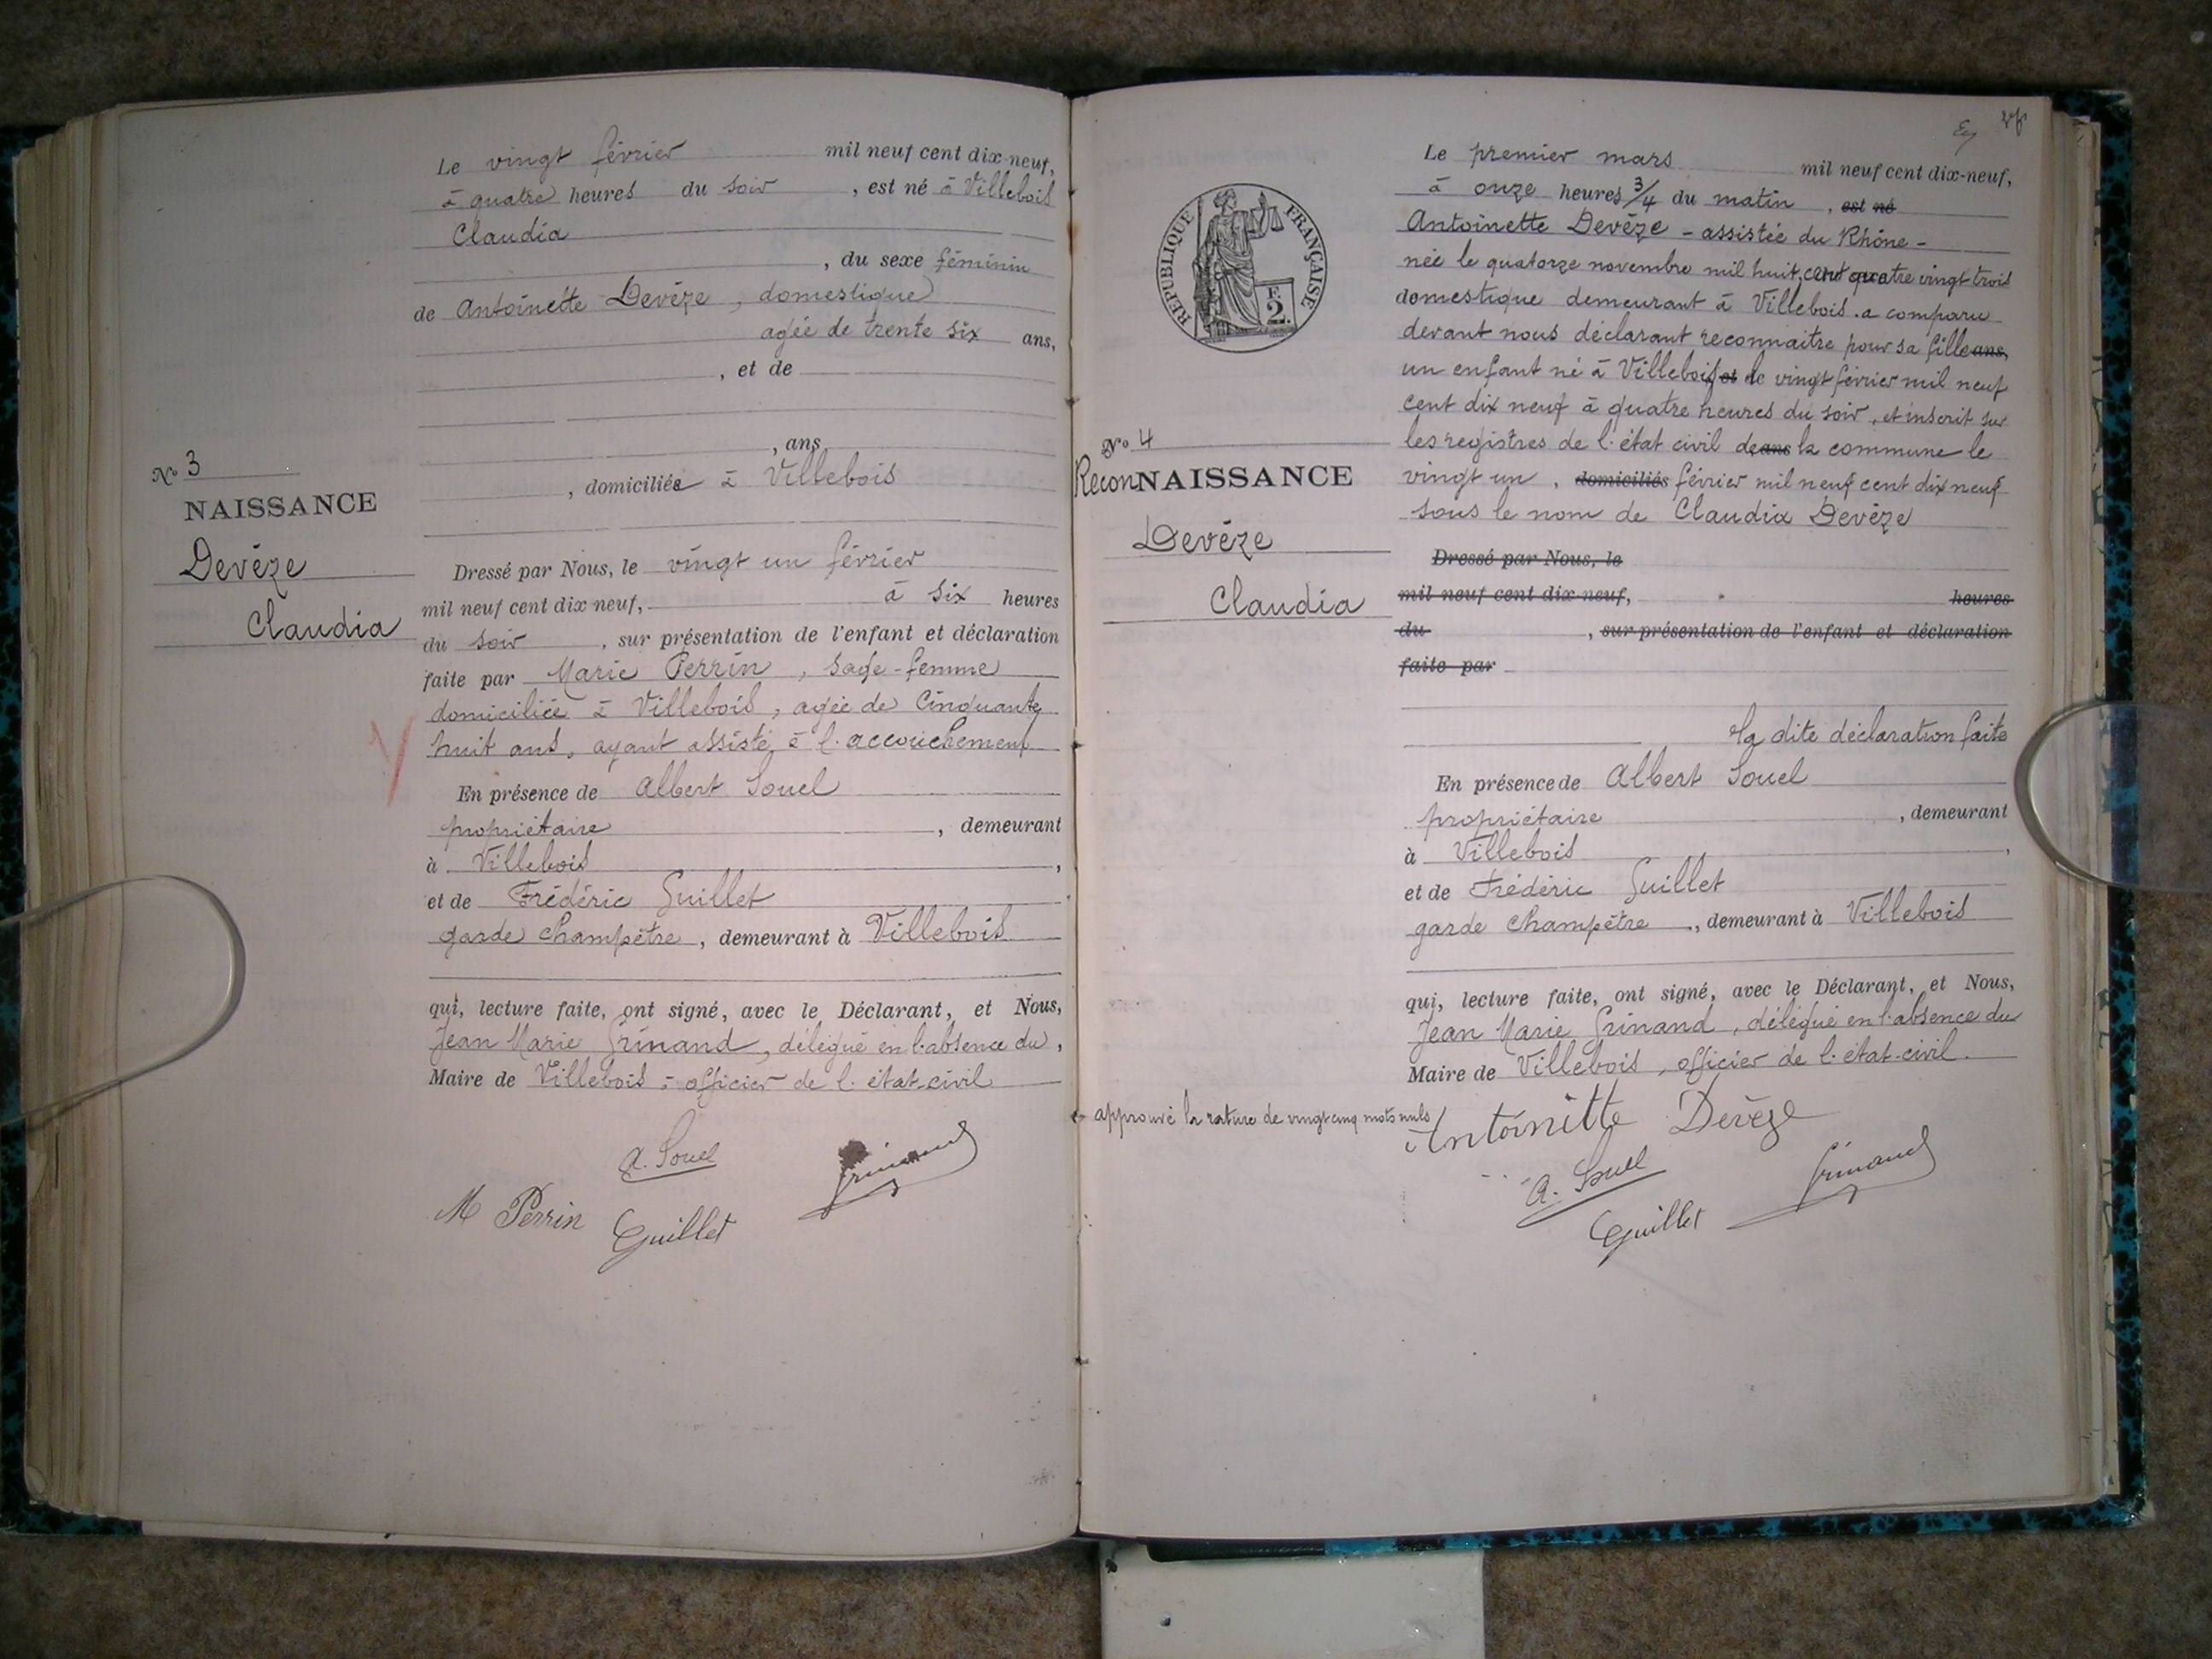 Le vingt février mil neuf cent dix-neuf,
à quatre heures du soir, est né à Villebois
Claudia
, du sexe féminin
de Antoinette Devéze, domestique
agée de trente six ans,
, et de
, ans
, domiciliée à Villebois
N° 3
NAISSANCE
Devéze
Claudia
Dressé par Nous, le vingt un février
mil neuf cent dix neuf, à six heures
du soir, sur présentation de l'enfant et déclaration
faite par Marie Perrin, sage-femme
domiciliée à Villebois, agée de Cinquante
huit ans, ayant assisté à l'accouchement
En présence de Albert Souel
propriétaire, demeurant
à Villebois,
et de Frédéric Guillet
garde champêtre, demeurant à Villebois
qui, lecture faite, ont signé, avec le Déclarant, et Nous,
Jean Marie Grinand, délégué en l'absence du,
Maire de Villebois, officier de l'état-civil
A. Souel
Grinand
M Perrin
Guillet
Le premier mars mil neuf cent dix-neuf,
à onze heures 3/4 du matin, est né
Antoinette Devéze - assistée du Rhône -
née le quatorze novembre mil huit cent quatre vingt trois
domestique demeurant à Villebois. a comparu
devant nous déclarant reconnaitre pour sa fille ans,
un enfant né à Villebois et le vingt février mil neuf
cent dix neuf à quatre heures du soir, et inscrit sur
les registres de l'état civil de ans la commune le
vingt un, domiciliés février mil neuf cent dix neuf
sous le nom de Claudia Devéze
REPUBLIQUE FRANÇAISE
F. 2.
N° 4
ReconNAISSANCE
Devéze
Claudia
Dressé par Nous, le
mil neuf cent dix-neuf, heures
du, sur présentation de l'enfant et déclaration
faite par
la dite déclaration faite
En présence de Albert Souel
propriétaire, demeurant
à Villebois,
et de Frédéric Guillet
garde champêtre, demeurant à Villebois
qui, lecture faite, ont signé, avec le Déclarant, et Nous,
Jean Marie Grinand, délégué en l'absence du
Maire de Villebois, officier de l'état-civil.
approuvé la rature de vingt cinq mots nuls
Antoinitte Devéze
A. Souel
Grinand
Guillet